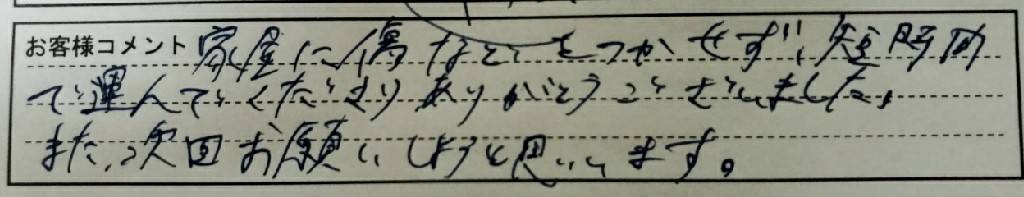 お客様コメント 家屋に傷などをつかせず、短時間
で運んでくださりありがとうございました。
また、次回お願いしようと思います。